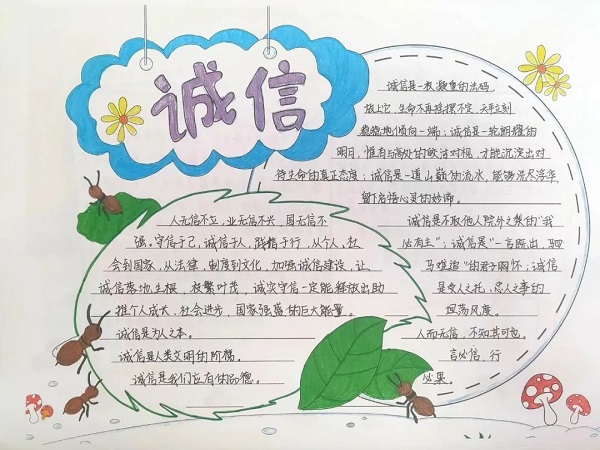 诚信
诚信是一枚凝重的砝码,
放上它,生命不再摇摆不定,天平立刻
稳稳地倾向一端;诚信是一轮朗耀的
明月,惟有与高处的皎洁对视,才能沉淀出对
待生命的真正态度;诚信是一道山巅的流水,能够洗尽浮华,
留下启悟心灵的妙谛。
诚信是不取他人院外之梨的“我
心有主”;诚信是“一言既出,驷
马难追”的君子胸怀;诚信
是受人之托,忠人之事的
坦荡风度。
人而无信,不知其可也。
言必信,行
必果。
人无信不立,业无信不兴,国无信不
强。守信于己,诚信于人,践信于行,从个人、社
会到国家,从法律,制度到文化,加强诚信建设,让
诚信落地生根,枝繁叶茂,诚实守信一定能释放出助
推个人成大,社会进步,国家强盛的巨大能量。
诚信是为人之本。
诚信是人类文明的阶梯。
诚信是我们应有的品德。